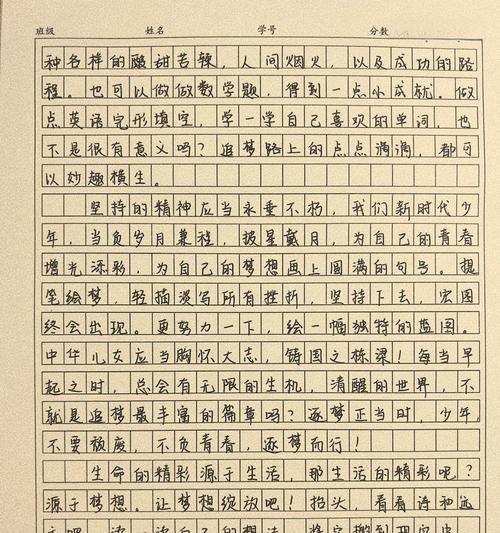 班级 姓名 学号 分数
种各样的酸甜苦辣，人间烟火，以及成功的路
程。也可以做做数学题，得到一点小成就。做
点英语完形填空，学一学自己喜欢的单词，也
不是很有意义吗？追梦路上的点点滴滴，都可
以妙趣横生。
坚持的精神应当永垂不朽，我们新时代少
年，当负岁月兼程，披星戴月，为自己的青春
增光添彩，为自己的梦想画上圆满的句号。提
笔绘梦，轻描淡写所有挫折，坚持下去，宏图
终会出现。更努力一下，绘一幅独特的蓝图。
中华儿女应当胸怀大志，铸国之栋梁！每当早
起之时，总会有无限的生机，清醒的世界，不
就是追梦最丰富的篇章吗？逐梦正当时，少年，
不要颓废，不负青春，逐梦而行！
生命的精彩源于生活，那生活的精彩呢？
源于梦想。让梦想绽放吧！抬头，看看诗和远